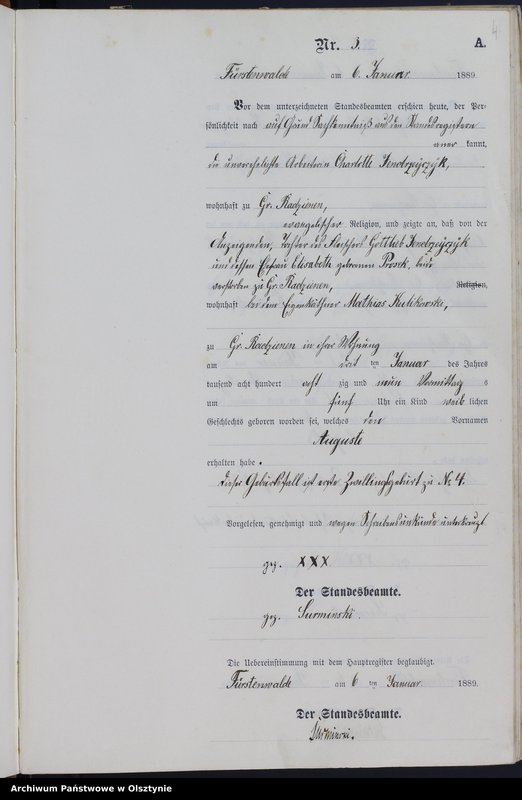 4
Nr. 3. A.
Fürstenwalde am 6. Januar 1889.
Vor dem unterzeichneten Standesbeamten erschien heute, der Per-
sönlichkeit nach auf Grund Sachkenntniß aus den Standesregistern
aner kannt,
die unverehelichte Arbeiterin Charlotte Jendrzeyczyk,
wohnhaft zu Gr. Radzienen,
evangelischer Religion, und zeigte an, daß von der
Anzeigenden, Tochter des Gottlieb Jendrzeyczyk
und dessen Ehefrau Elisabeth geborenen Prosek, beide
verstorben zu Gr. Radzienen, Religion,
wohnhaft bei dem Eigenkäthner Mathias Kulikowski,
zu Gr. Radzienen in ihrer Wohnung
am drit ten Januar des Jahres
tausend acht hundert acht zig und neun Vormittag s
um fünf Uhr ein Kind weib lichen
Geschlechts geboren worden sei, welches den Vornamen
Auguste
erhalten habe.
Dieser Geburtsfall ist erste Zwillingsgeburt zu No 4.
Vorgelesen, genehmigt und wegen Schreibensunkunde unterkreuzt
gez. XXX
Der Standesbeamte.
gez. Surminski.
Die Uebereinstimmung mit dem Hauptregister beglaubigt.
Fürstenwalde am 6 ten Januar 1889.
Der Standesbeamte.
Surminski.
Archiwum Państwowe w Olsztynie